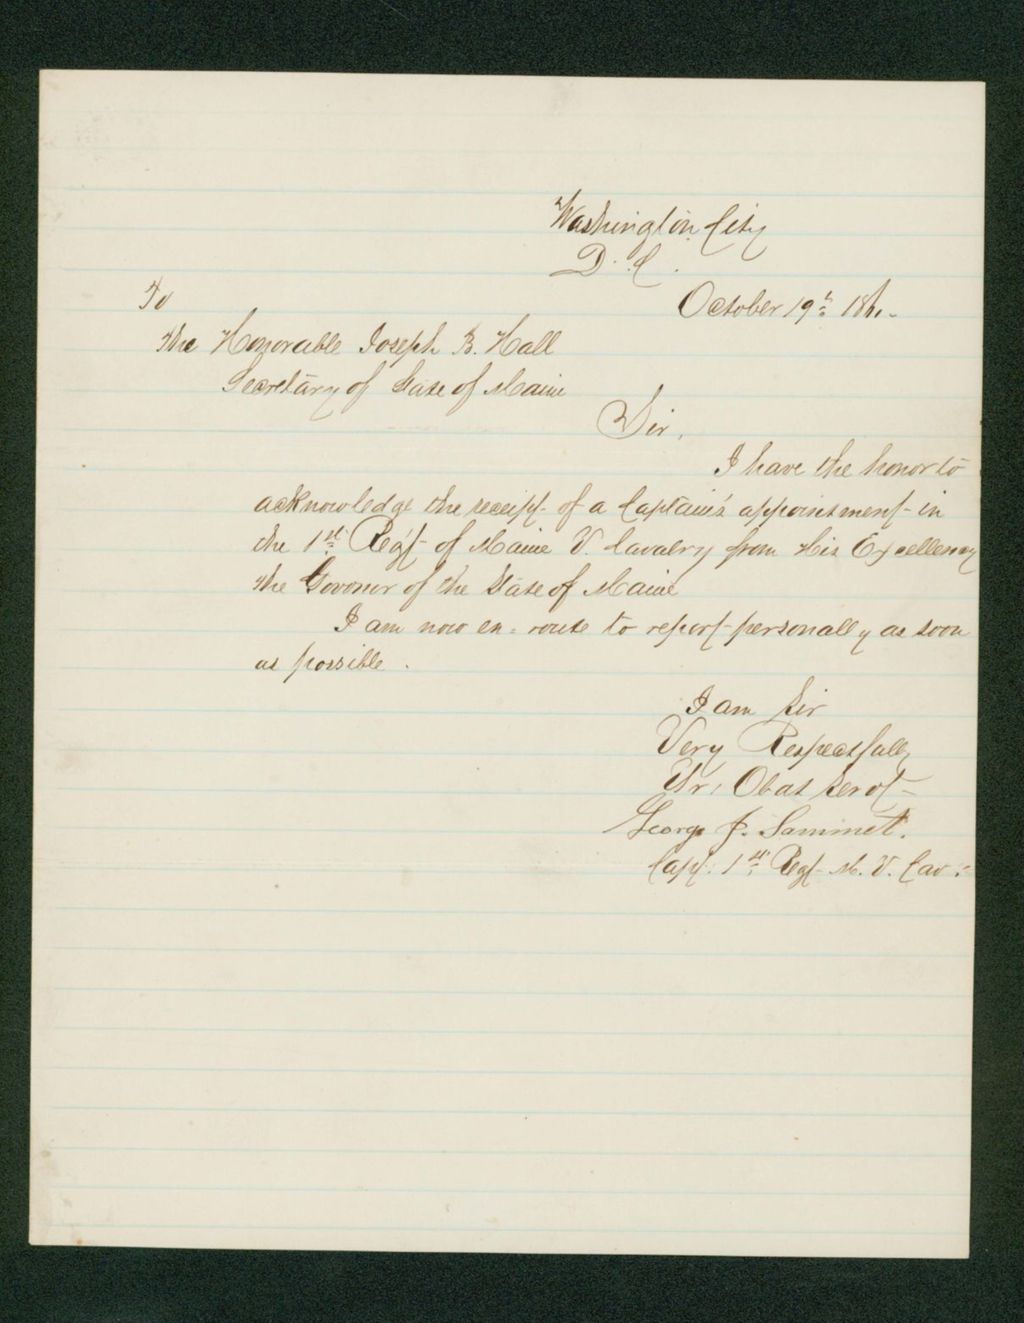 Washington City
D. C.
October 19th 1861.
To
The Honorable Joseph B. Hall
Secretary of State of Maine
Sir,
I have the honor to
acknowledge the receipt of a Captain's appointment in
the 1st Reg't of Maine V. Cavalry from His Excellency
the Govonor of the State of Maine
I am now en=route to report personally as soon
as possible.
I am Sir
Very Respectfully
Yr. Obdt Servt
George J. Summat.
Capt. 1st Regt M. V. Cav.